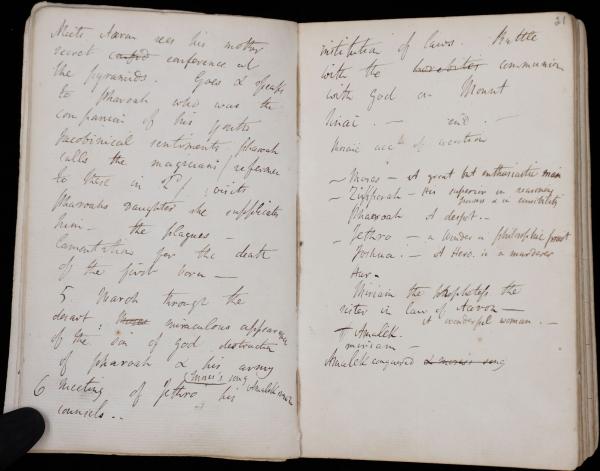 Meets Aaron sees his mother
secret confid conference at
the pyramids. Goes & speaks
to Pharoah who was the
companion of his youth
Jacobinical sentiments pharoah
calls the magicians / reference
to these in ; visits
Pharoahs daughter she supplicates
him - the plagues -
lamentation for the death
of the first born —
5. March through the
desart : miraculous appearance
of the Son of god destruction
of pharoah & his army
(Moses's song
6 meeting of Jethro, his Amalek
counsels ..
21
institution of laws. Battle
with the communion
with God on Mount
Sinai . — end . —
Mosaic acct. of creation
~ Moses - A great but enthusiastic man
~ Zipporah - His superior in reasoning
powers & in sensibility
Pharoah A despot ..
~ Jethro - a philosophic priest
Joshua . - A Hero. ie a murderer
Hur -
Miriam the prophetess the
sister in law of Aaron —
A wonderful woman . —
Amalek.
miriam -
Amalek conquered & Moses's song